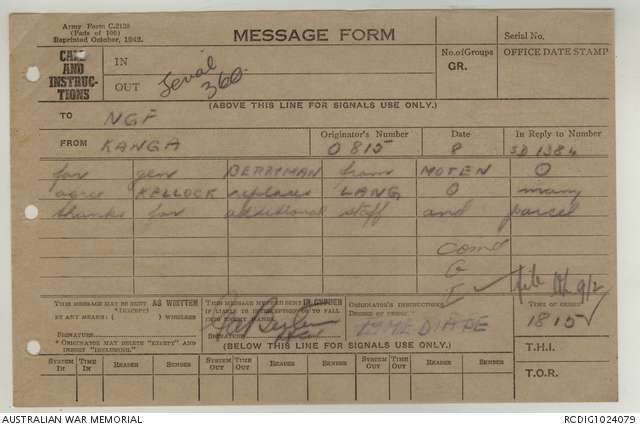 Army Form C.2128
(Pads of 100)
Reprinted October, 1942.
MESSAGE FORM
Serial No.
CALL AND INSTRUCTIONS
IN
OUT
Serial 360.
No. of Groups
GR.
OFFICE DATE STAMP
(ABOVE THIS LINE FOR SIGNALS USE ONLY.)
TO NGF
FROM KANGA
Originator's Number
0815
Date
8
In Reply to Number
SD 1384
for gen BERRYMAN from MOTEN O
agree KELLOCK replaces LANG O many
thanks for additional staff and parcel
Comd
G
I
file
9/2
THIS MESSAGE MAY BE SENT AS WRITTEN
*(EXCEPT)
BY ANY MEANS ( ) WIRELESS
SIGNATURE
* ORIGINATOR MAY DELETE "EXCEPT" AND INSERT "INCLUDING."
THIS MESSAGE MUST BE SENT IN CYPHER
IF LIABLE TO INTERCEPTION OR TO FALL INTO ENEMY HANDS.
SIGNATURE
ORIGINATOR'S INSTRUCTIONS
DEGREE OF PRIORITY
IMMEDIATE
TIME OF ORIGIN
1815
(BELOW THIS LINE FOR SIGNALS USE ONLY.)
T.H.I.
T.O.R.
SYSTEM IN
TIME IN
READER
SENDER
SYSTEM OUT
TIME OUT
READER
SENDER
SYSTEM OUT
TIME OUT
READER
SENDER
AUSTRALIAN WAR MEMORIAL
RCDIG1024079